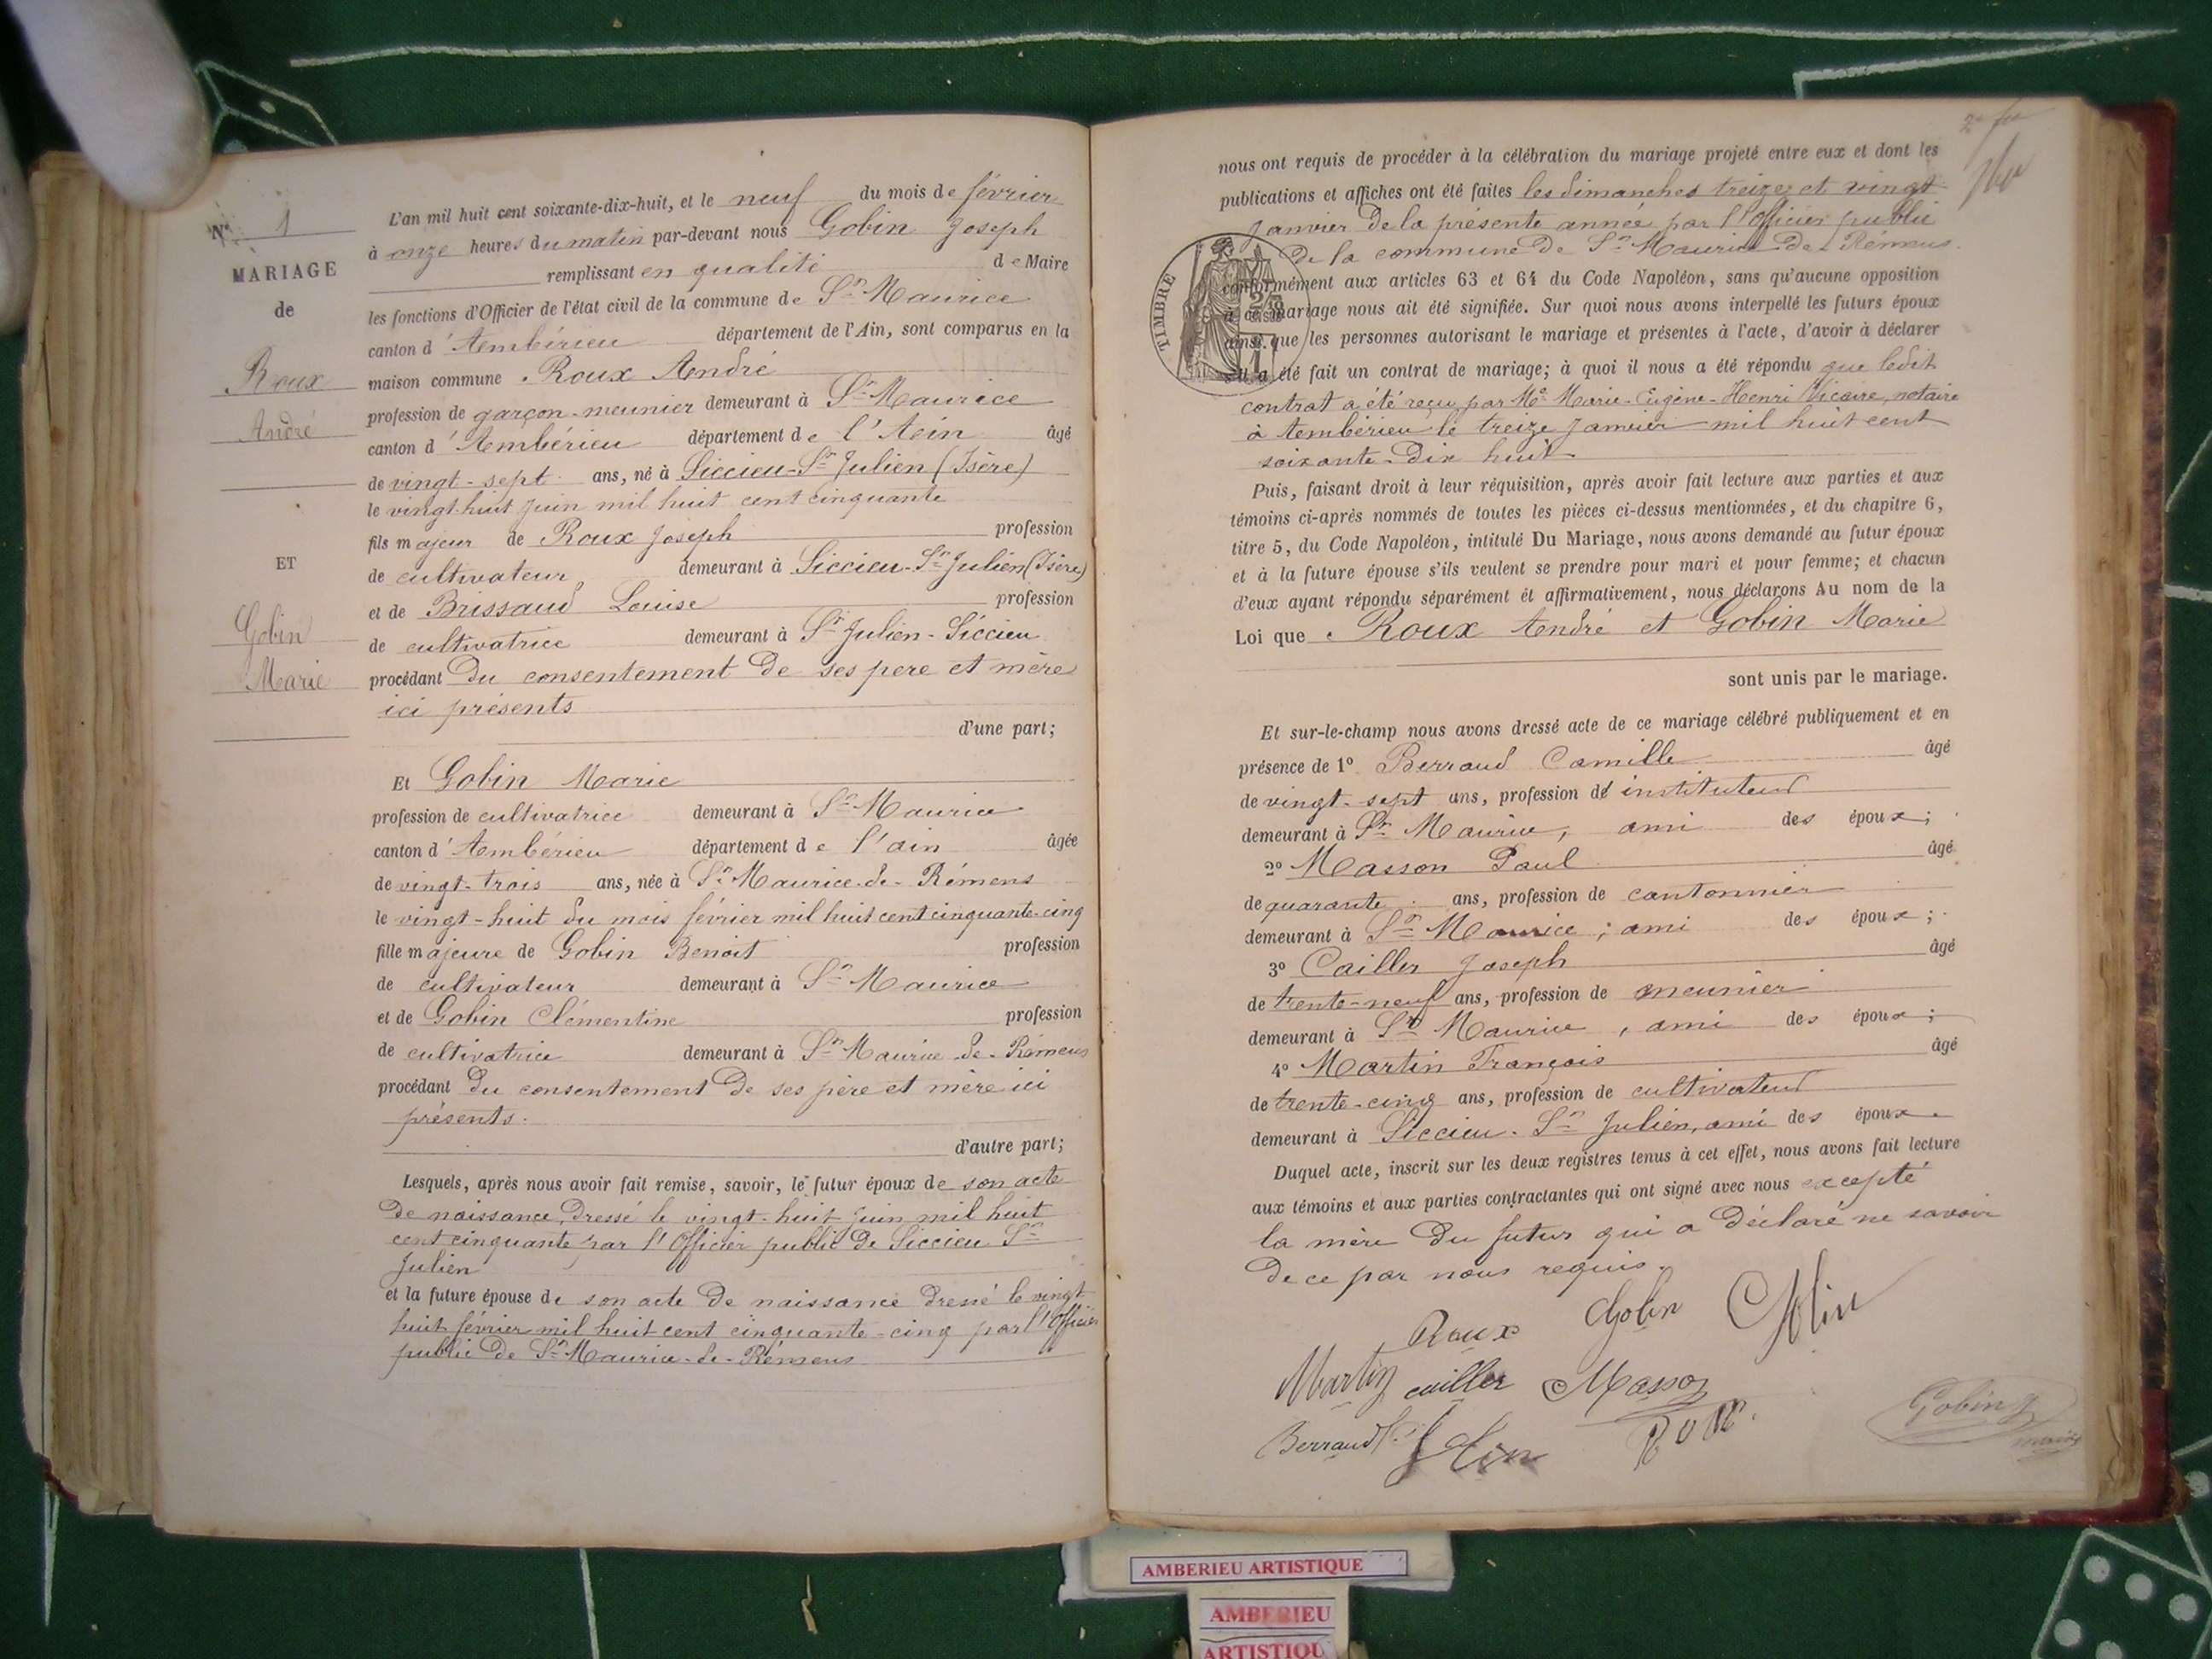 N° 1
MARIAGE
de
Roux
André
ET
Gobin
Marie
L'an mil huit cent soixante-dix-huit, et le neuf du mois de février
à onze heures du matin par-devant nous Gobin Joseph
remplissant en qualité de Maire
les fonctions d'Officier de l'état civil de la commune de St Maurice
canton d'Ambérieu département de l'Ain, sont comparus en la
maison commune Roux André
profession de garçon-meunier demeurant à St Maurice
canton d'Ambérieu département de l'Ain âgé
de vingt-sept ans, né à Siccieu-St Julien (Isère)
le vingt-huit juin mil huit cent cinquante
fils majeur de Roux Joseph profession
de cultivateur demeurant à Siccieu-St Julien (Isère)
et de Brissaud Louise profession
de cultivatrice demeurant à St Julien-Siccieu
procédant du consentement de ses pere et mère
ici présents
d'une part;
Et Gobin Marie
profession de cultivatrice demeurant à St Maurice
canton d'Ambérieu département de l'ain âgée
de vingt-trois ans, née à St Maurice-de-Rémens
le vingt-huit du mois février mil huit cent cinquante-cinq
fille majeure de Gobin Benoit profession
de cultivateur demeurant à St Maurice
et de Gobin Clémentine profession
de cultivatrice demeurant à St Maurice-de-Rémens
procédant du consentement de ses père et mère ici
présents.
d'autre part;
Lesquels, après nous avoir fait remise, savoir, le futur époux de son acte
de naissance, dressé le vingt-huit juin mil huit
cent cinquante par l'Officier public de Siccieu St
Julien
et la future épouse de son acte de naissance dressé le vingt
huit février mil huit cent cinquante-cinq par l'Officier
public de St Maurice-de-Rémens
nous ont requis de procéder à la célébration du mariage projeté entre eux et dont les
publications et affiches ont été faites les dimanches treize et vingt
Janvier de la présente année par l'Officier public
de la commune de St Maurice-de-Rémens
conformément aux articles 63 et 64 du Code Napoléon, sans qu'aucune opposition
à ce mariage nous ait été signifiée. Sur quoi nous avons interpellé les futurs époux
ainsi que les personnes autorisant le mariage et présentes à l'acte, d'avoir à déclarer
s'il a été fait un contrat de mariage; à quoi il nous a été répondu que ledit
contrat a été reçu par Me Marie-Eugène-Henri Vicaire, notaire
à Ambérieu le treize Janvier mil huit cent
soixante-dix huit
TIMBRE
Puis, faisant droit à leur réquisition, après avoir fait lecture aux parties et aux
témoins ci-après nommés de toutes les pièces ci-dessus mentionnées, et du chapitre 6,
titre 5, du Code Napoléon, intitulé Du Mariage, nous avons demandé au futur époux
et à la future épouse s'ils veulent se prendre pour mari et pour femme; et chacun
d'eux ayant répondu séparément et affirmativement, nous déclarons Au nom de la
Loi que Roux André et Gobin Marie
sont unis par le mariage.
Et sur-le-champ nous avons dressé acte de ce mariage célébré publiquement et en
présence de 1° Berraud Camille âgé
de vingt-sept ans, profession d'instituteur
demeurant à St Maurice, ami des époux;
2° Masson Paul âgé
de quarante ans, profession de cantonnier
demeurant à St Maurice; ami des époux;
3° Cailler Joseph âgé
de trente-neuf ans, profession de meunier
demeurant à St Maurice, ami des époux;
4° Martin François âgé
de trente-cinq ans, profession de cultivateur
demeurant à Siccieu-St Julien, ami des époux.
Duquel acte, inscrit sur les deux registres tenus à cet effet, nous avons fait lecture
aux témoins et aux parties contractantes qui ont signé avec nous excepté
la mère du futur qui a déclaré ne savoir
de ce par nous requis.
Roux Gobin
Martin cailler Masson
Berraud
Roux
Gobin J
maire
AMBERIEU ARTISTIQUE
AMBERIEU
ARTISTIQU